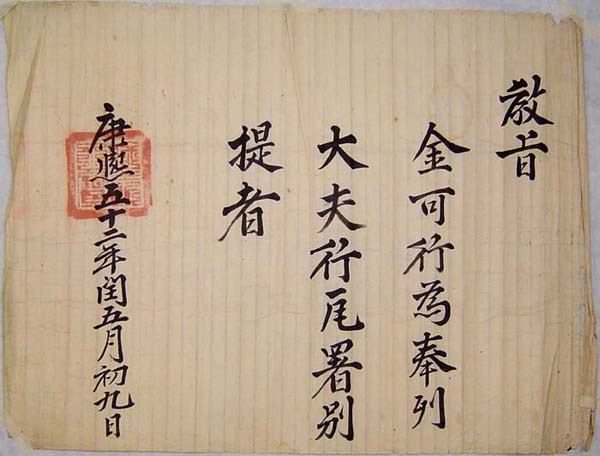 教旨
金可行為奉列
大夫行瓦署別
提者
康熙五十二年閏五月初九日